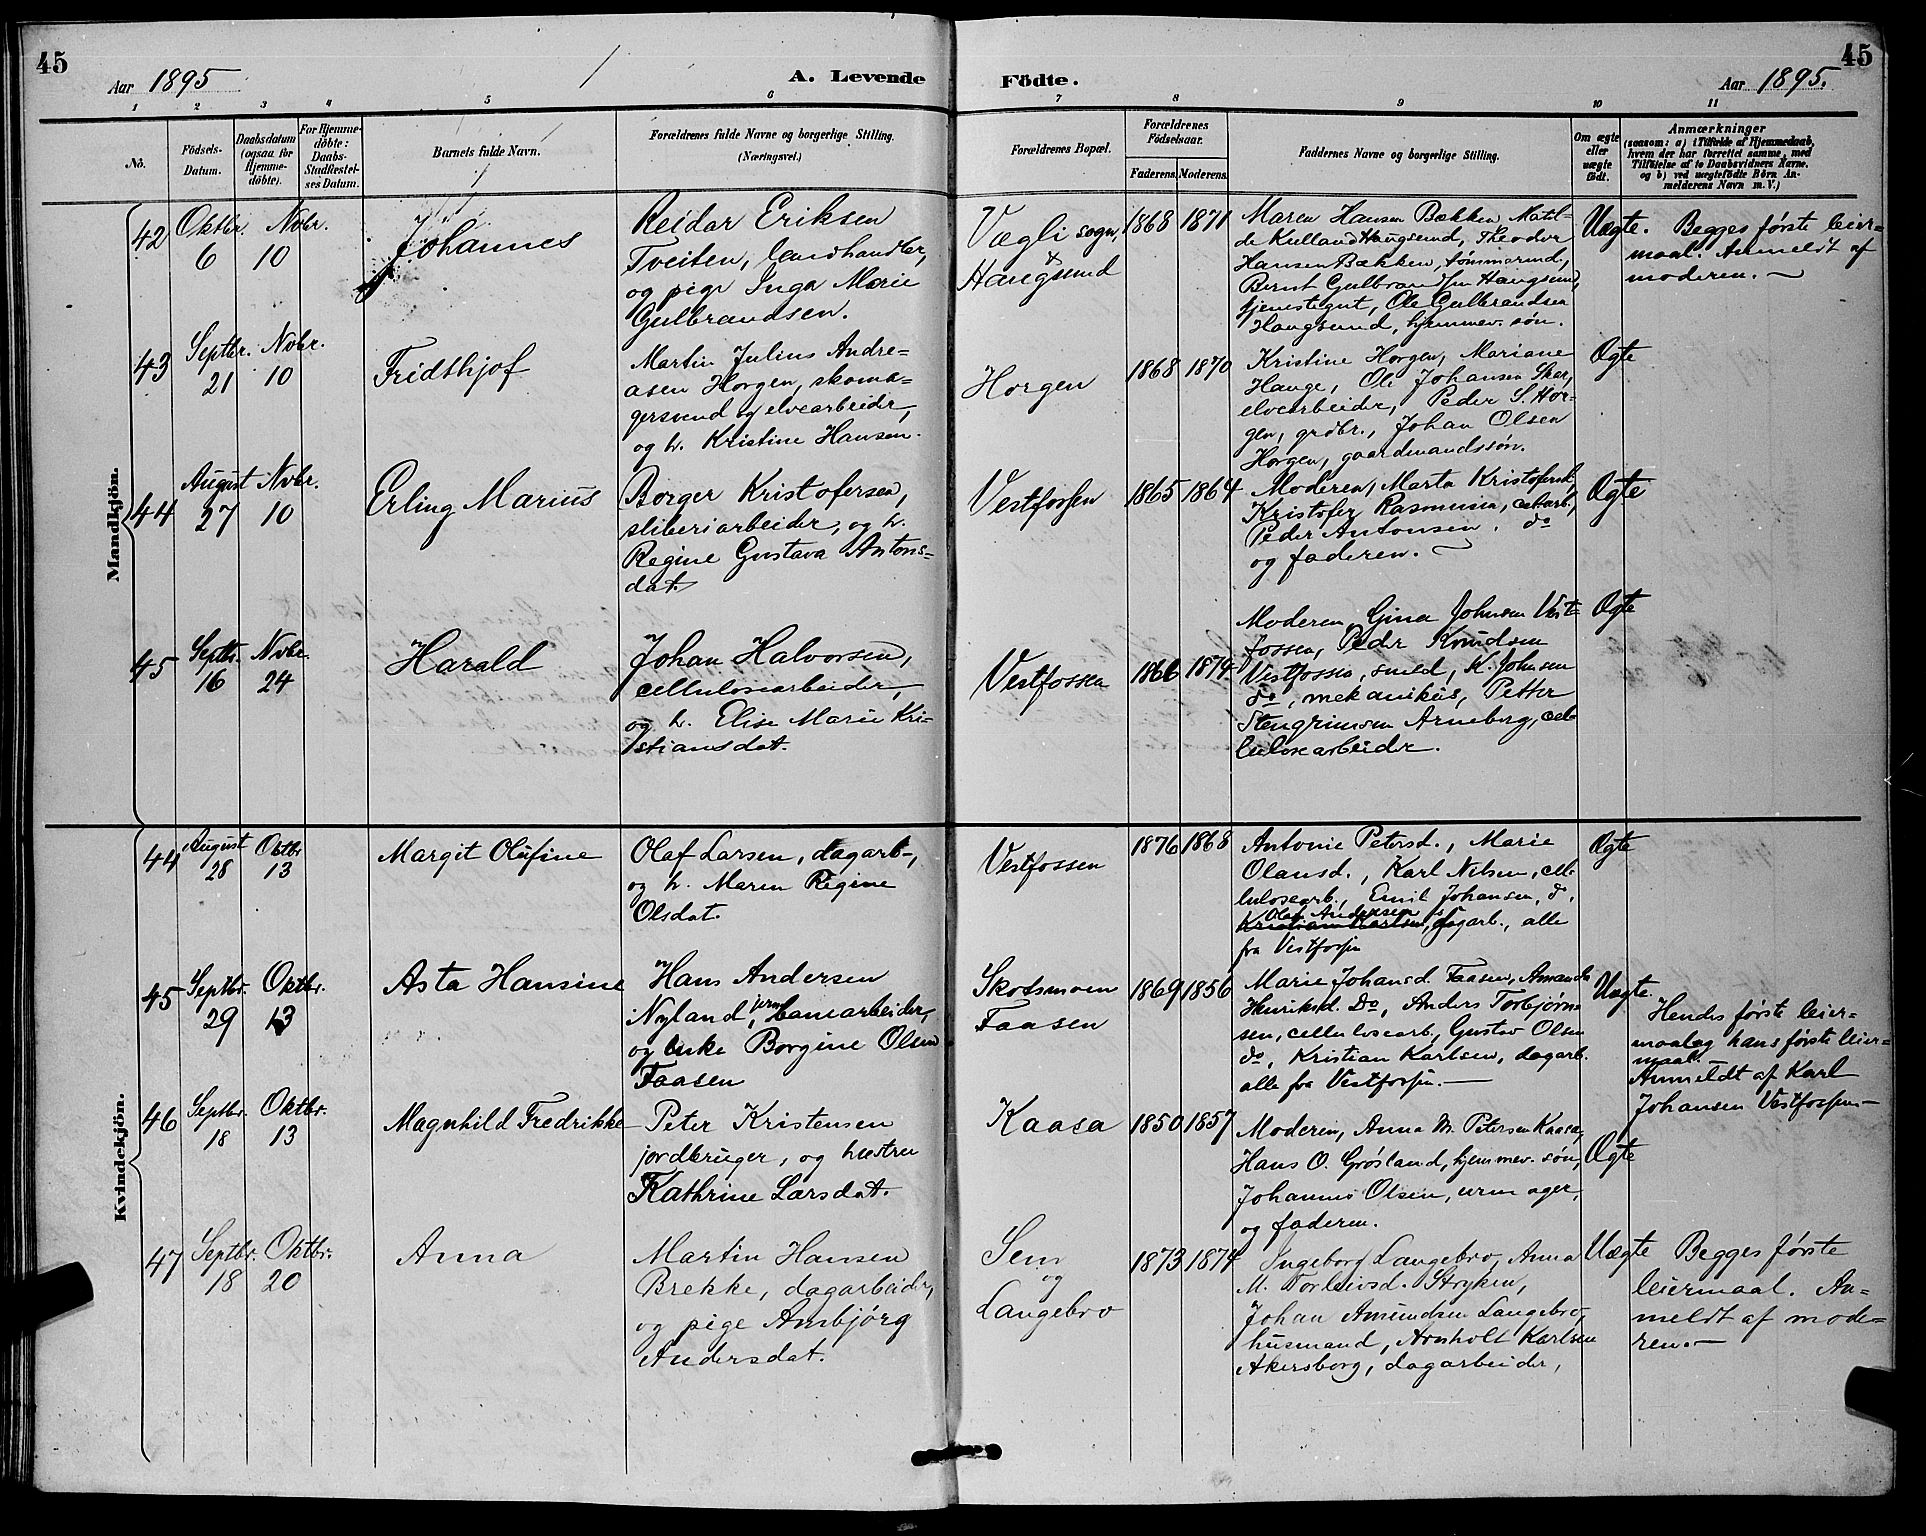 45
Aar 1895
A. Levende
Födte.
Aar 1895.
45
1 2 3 4 5 6 7 8 9 10 11
No.
Födsels-
Datum.
Daabsdatum
(ogsaa for
Hjemme-
döbte).
For Hjemme-
döbte:
Daabs-
Stadfæstel-
ses Datum.
Barnets fulde Navn.
Forældrenes fulde Navne og borgerlige Stilling.
(Næringsvei.)
Forældrenes Bopæl.
Forældrenes
Födselsaar.
Faderens. Moderens.
Faddernes Navne og borgerlige Stilling.
Om ægte
eller
uægte
födt.
Anmærkninger
(saasom: a) i Tilfælde af Hjemmedaab,
hvem der har forrettet samme, med
Tilföielse af to Daabsvidners Navne.
og b) ved uægtefödte Börn An-
melderens Navn m. V.)
Mandkjön.
42
Oktbr.
6
Novbr.
10
Johannes
Reidar Eriksen
Tveiten, landhandler,
og pige Inga Marie
Gulbrandsen.
Vægli sogn,
&
Haugsund
1868 1871
Maren Hansen Bækken, Matil-
de Kulland Haugsund, Theodor
Hansen Bækken, tømmermd,
Bernt Gulbrandsen Haugsund,
tjenestegut, Ole Gulbrandsen
Haugsund, hjemmev. søn.
Uægte.
Begges første leier-
maal. Anmeldt af
moderen.
43
Septbr.
21
Novbr.
10
Fridthjof
Martin Julius Andre-
asen Horgen, skoma-
gersvend og elvearbeider,
og h. Kristine Hansen.
Horgen
1868 1870
Kristine Horgen, Mariane
Hauge, Ole Johansen Skar,
elvearbeider, Peder S. Hor-
gen, grdbr., Johan Olsen
Horgen, gaardmandssøn.
Ægte
44
August
27
Novbr.
10
Erling Marius
Borger Kristofersen,
sliberiarbeider, og h.
Regine Gustava Antons-
dat.
Vestfossen
1865 1864
Moderen, Marta Kristofersd.,
Kristofer Rasmussen, cellarb.,
Peder Antonsen, do
og faderen.
Ægte
45
Septbr.
16
Novbr.
24
Harald
Johan Halvorsen,
cellulosearbeider,
og h. Elise Marie Kri-
stiansdat.
Vestfossen
1866 1874
Moderen, Gina Johnsen Vest-
fossen, Peder Knudsen
Vestfossen, smed, K. Johnsen
do, mekanikus, Petter
Stengrimsen Arneberg, cel-
lulosearbeider.
Ægte
Kvindekjön.
44
August
28
Oktbr
13
Margit Olufine
Olaf Larsen, dagarb.,
og h. Maren Regine
Olsdat.
Vestfossen
1876 1868
Antonie Petersd., Marie
Olausd., Karl Nilsen, cel-
lulosearb., Emil Johansen, do,
Olaf Andersen
Kristian Karlsen, dagarb., alle
fra Vestfossen
Ægte
45
Septbr.
29
Oktbr.
13
Asta Hansine
Hans Andersen
Nyland, jernbanearbeider,
og enke Borgine Olsen
Faasen
Skotsmoen
Faasen
1869 1856
Marie Johansd. Faasen, Amanda
Henriksd. Do, Anders Torbjørn-
sen, cellulosearb., Gustav Olsen
do, Kristian Karlsen, dagarb.
alle fra Vestfossen.
Uægte.
Hendes første leier-
maal og hans første leier-
maal.
Anmeldt af Karl
Johansen Vestfossen
46
Septbr.
18
Oktbr.
13
Magnhild Fredrikke
Peter Kristensen
jordbruger, og hustru
Kathrine Larsdat.
Kaasa
1850 1857
Moderen, Anna M. Petersen Kaasa,
Hans O. Grøsland, hjemmev. søn,
Johannes Olsen, urmager,
og faderen.
Ægte
47
Septbr.
18
Oktbr.
20
Anna
Martin Hansen
Brekke, dagarbeider,
og pige Ambjørg
Andersdat.
Sem
og
Langebro
1873 1874
Ingeborg Langebro, Anna
M. Torleivsd. Stryken,
Johan Amundsen Langebro,
husmand, Arnholt Karlsen
Akersborg, dagarbeider,
Uægte
Begges første
leiermaal. An-
meldt af mode-
ren.